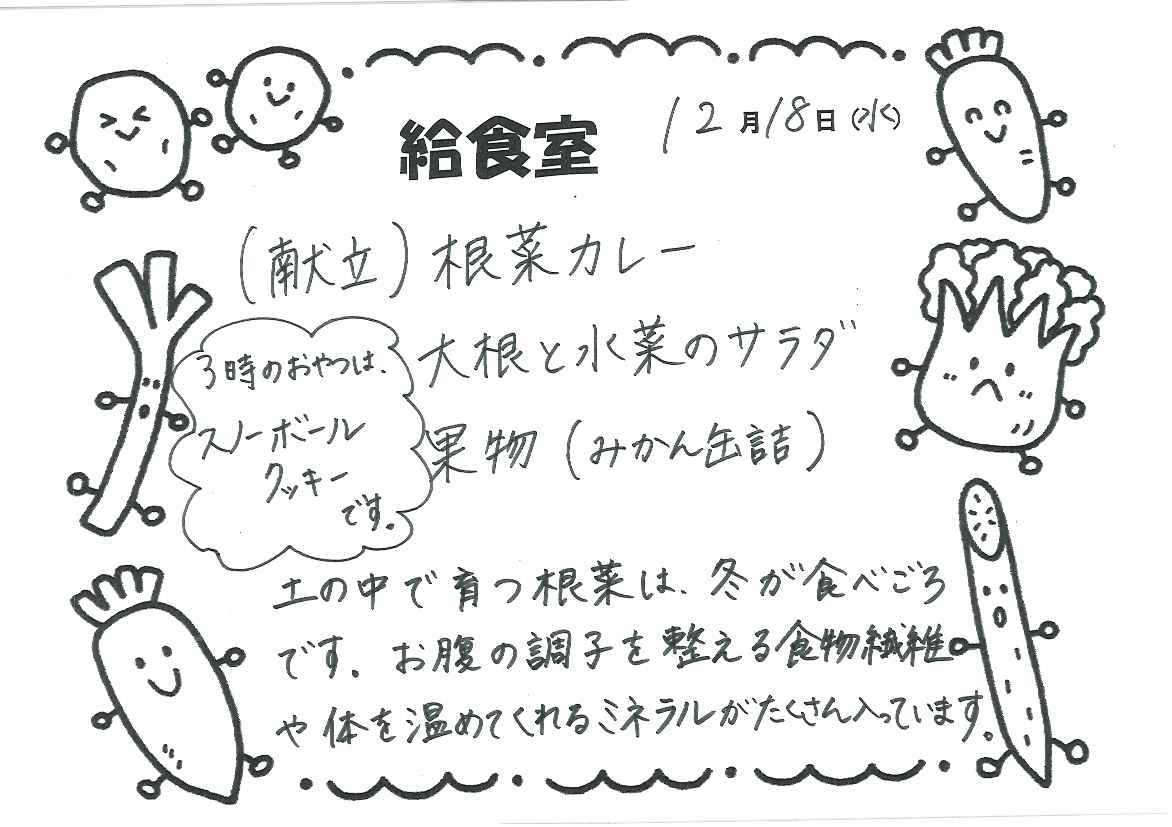 給食室
12月18日(水)
(献立)根菜カレー
大根と水菜のサラダ
果物(みかん缶詰)
3時のおやつは、
スノーボール
クッキー
です。
土の中で育つ根菜は、冬が食べごろ
です。お腹の調子を整える食物繊維
や体を温めてくれるミネラルがたくさん入っています。